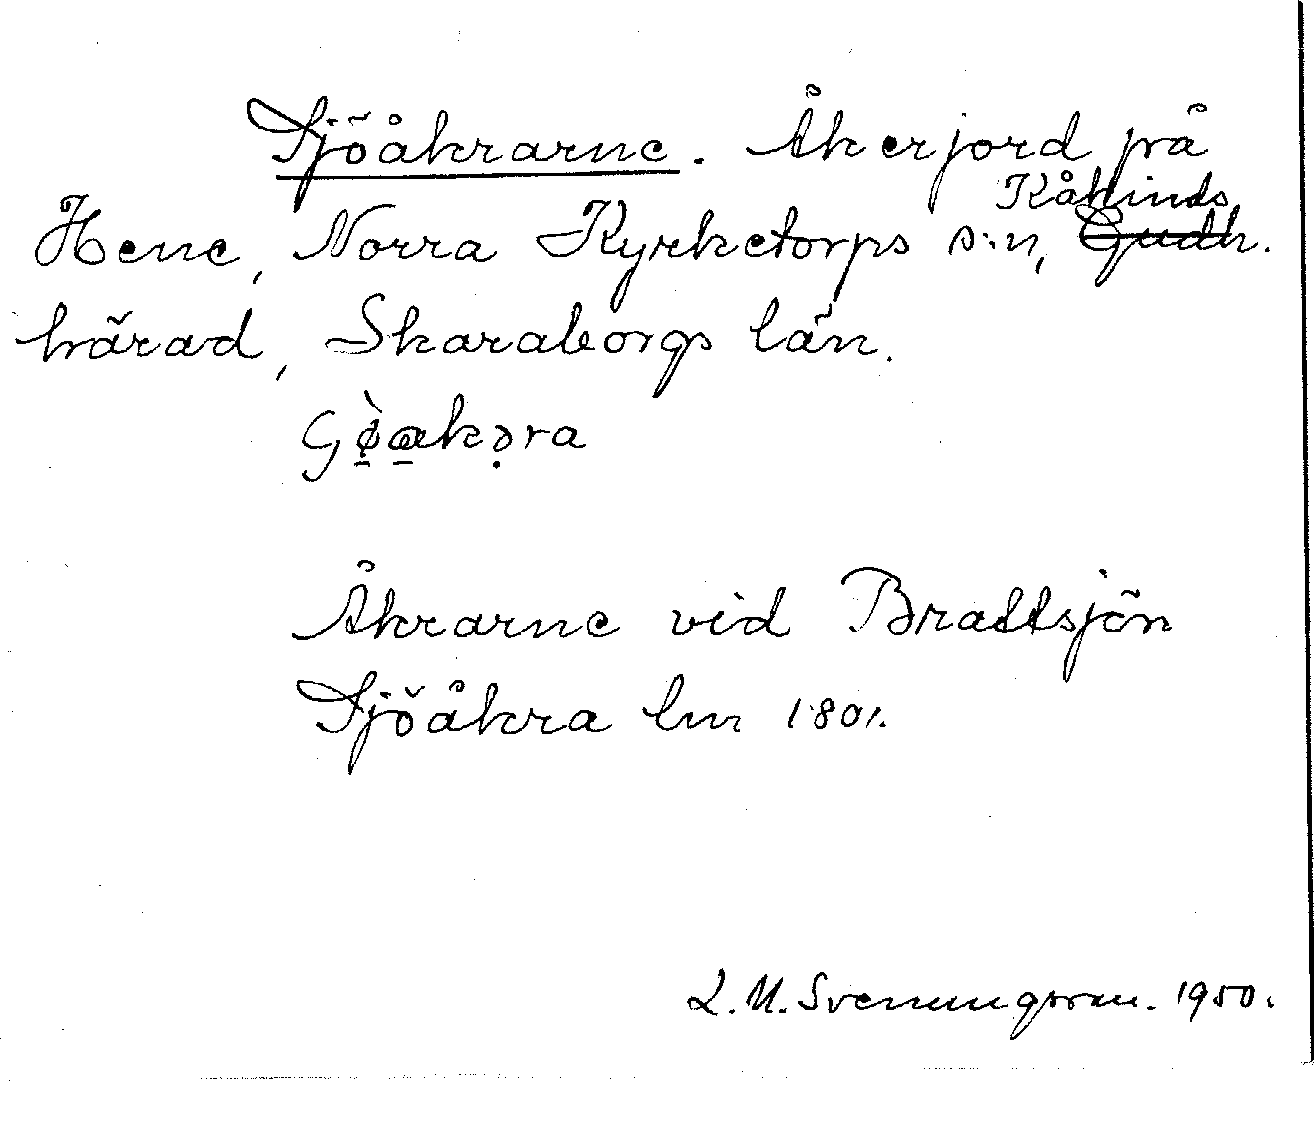 Sjöåkrarne. Åkerjord på
Kåkinds
Hene, Norra Kyrketorps s:n, Gudh.
härad, Skaraborgs län.
Åkrarne vid Brattsjön
Sjöåkra lm 1801.
L.M. Svenungsson. 1950.